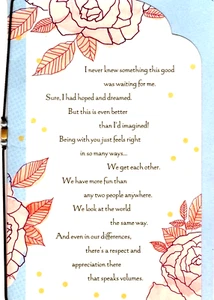 I never knew something this good
was waiting for me.
Sure, I had hoped and dreamed.
But this is even better
than I'd imagined!
Being with you just feels right
in so many ways...
We get each other.
We have more fun than
any two people anywhere.
We look at the world
the same way.
And even in our differences,
there's a respect and
appreciation there
that speaks volumes.